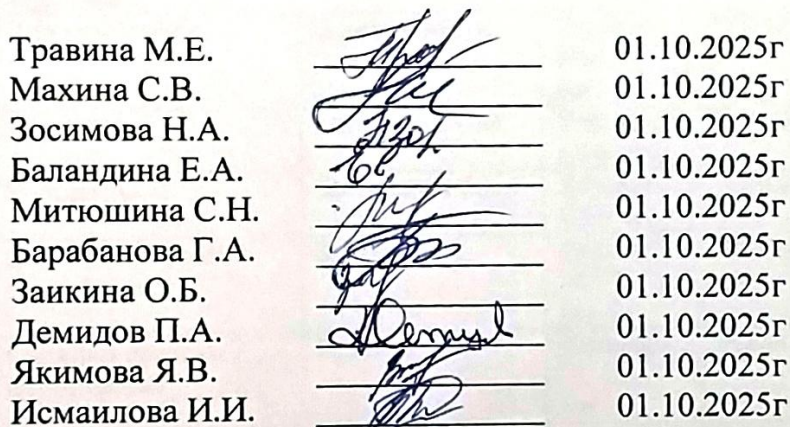 Травина М.Е. 01.10.2025г
Махина С.В. 01.10.2025г
Зосимова Н.А. 01.10.2025г
Баландина Е.А. 01.10.2025г
Митюшина С.Н. 01.10.2025г
Барабанова Г.А. 01.10.2025г
Заикина О.Б. 01.10.2025г
Демидов П.А. 01.10.2025г
Якимова Я.В. 01.10.2025г
Исмаилова И.И. 01.10.2025г